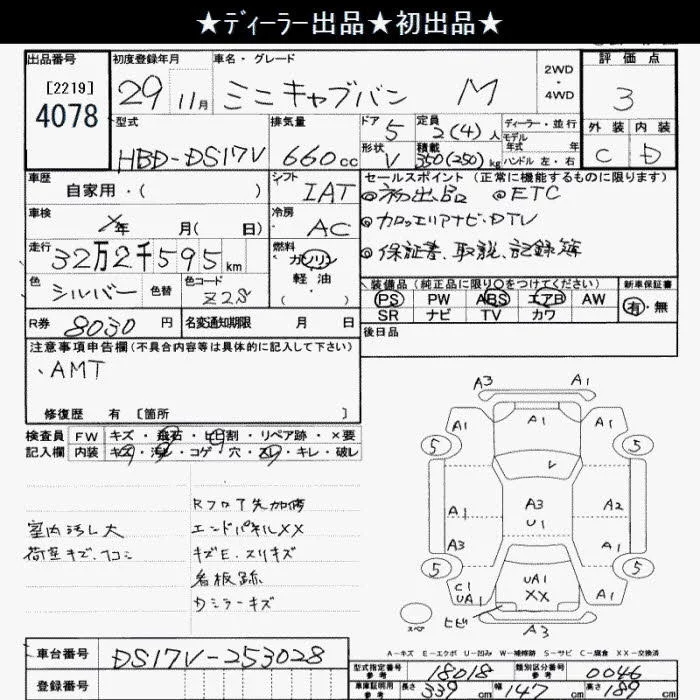 ★ディーラー出品★初出品★
出品番号
[2219]
4078
初度登録年月
29 11月
車名・グレード
ミニキャブバン M
2WD
・
4WD
評価点
3
外装 内装
C D
型式
HBD-DS17V
排気量
660cc
ドア
5
形状
V
定員
2(4)人
積載
350(250)kg
ディーラー・並行
モデル
年式 年
ハンドル 左・右
車歴
自家用・( )
シフト
IAT
車検
年 月( 日)
冷房
AC
走行
32万2千595km
燃料
ガソリン
・
軽油
・
( )
色
シルバー
色替
色コード
Z2S
R券 8030円
名変通知期限 月 日
セールスポイント (正常に機能するものに限ります)
◎初出品 ◎ETC
◎カロッエリアナビ・DTV
◎保証書、取説、記録簿
装備品 (純正品に限り○をつけてください)
新車保証書
PS PW ABS エアB AW
有・無
SR ナビ TV カワ
後日品
注意事項申告欄 (不具合内容等は具体的に記入して下さい)
、AMT
修復歴 有 [箇所 ]
検査員
記入欄
FW キズ・飛石・ヒビ割・リペア跡・×要
内装 キズ・汚レ・コゲ・穴・スレ・キレ・破レ
室内汚レ大
荷室キズ、凹コミ
Rフロア先加修
エンドパネルXX
キズE、スリキズ
看板跡
A3 A1
A1 A1 A1
5 5
A1 A3 A2
U1
A3 A1
5 5
C1 UA1 UA1 A1
XX
スペア
ヒビ
A3
A-キズ E-エクボ U-凹み W-補修跡 S-サビ C-腐食 XX-交換済
車台番号 DS17V-253028
登録番号
型式指定番号
参考
18018
類別区分番号
参考
0046
車庫証明用
参考
長さ 339cm 幅 147cm 高さ 189cm